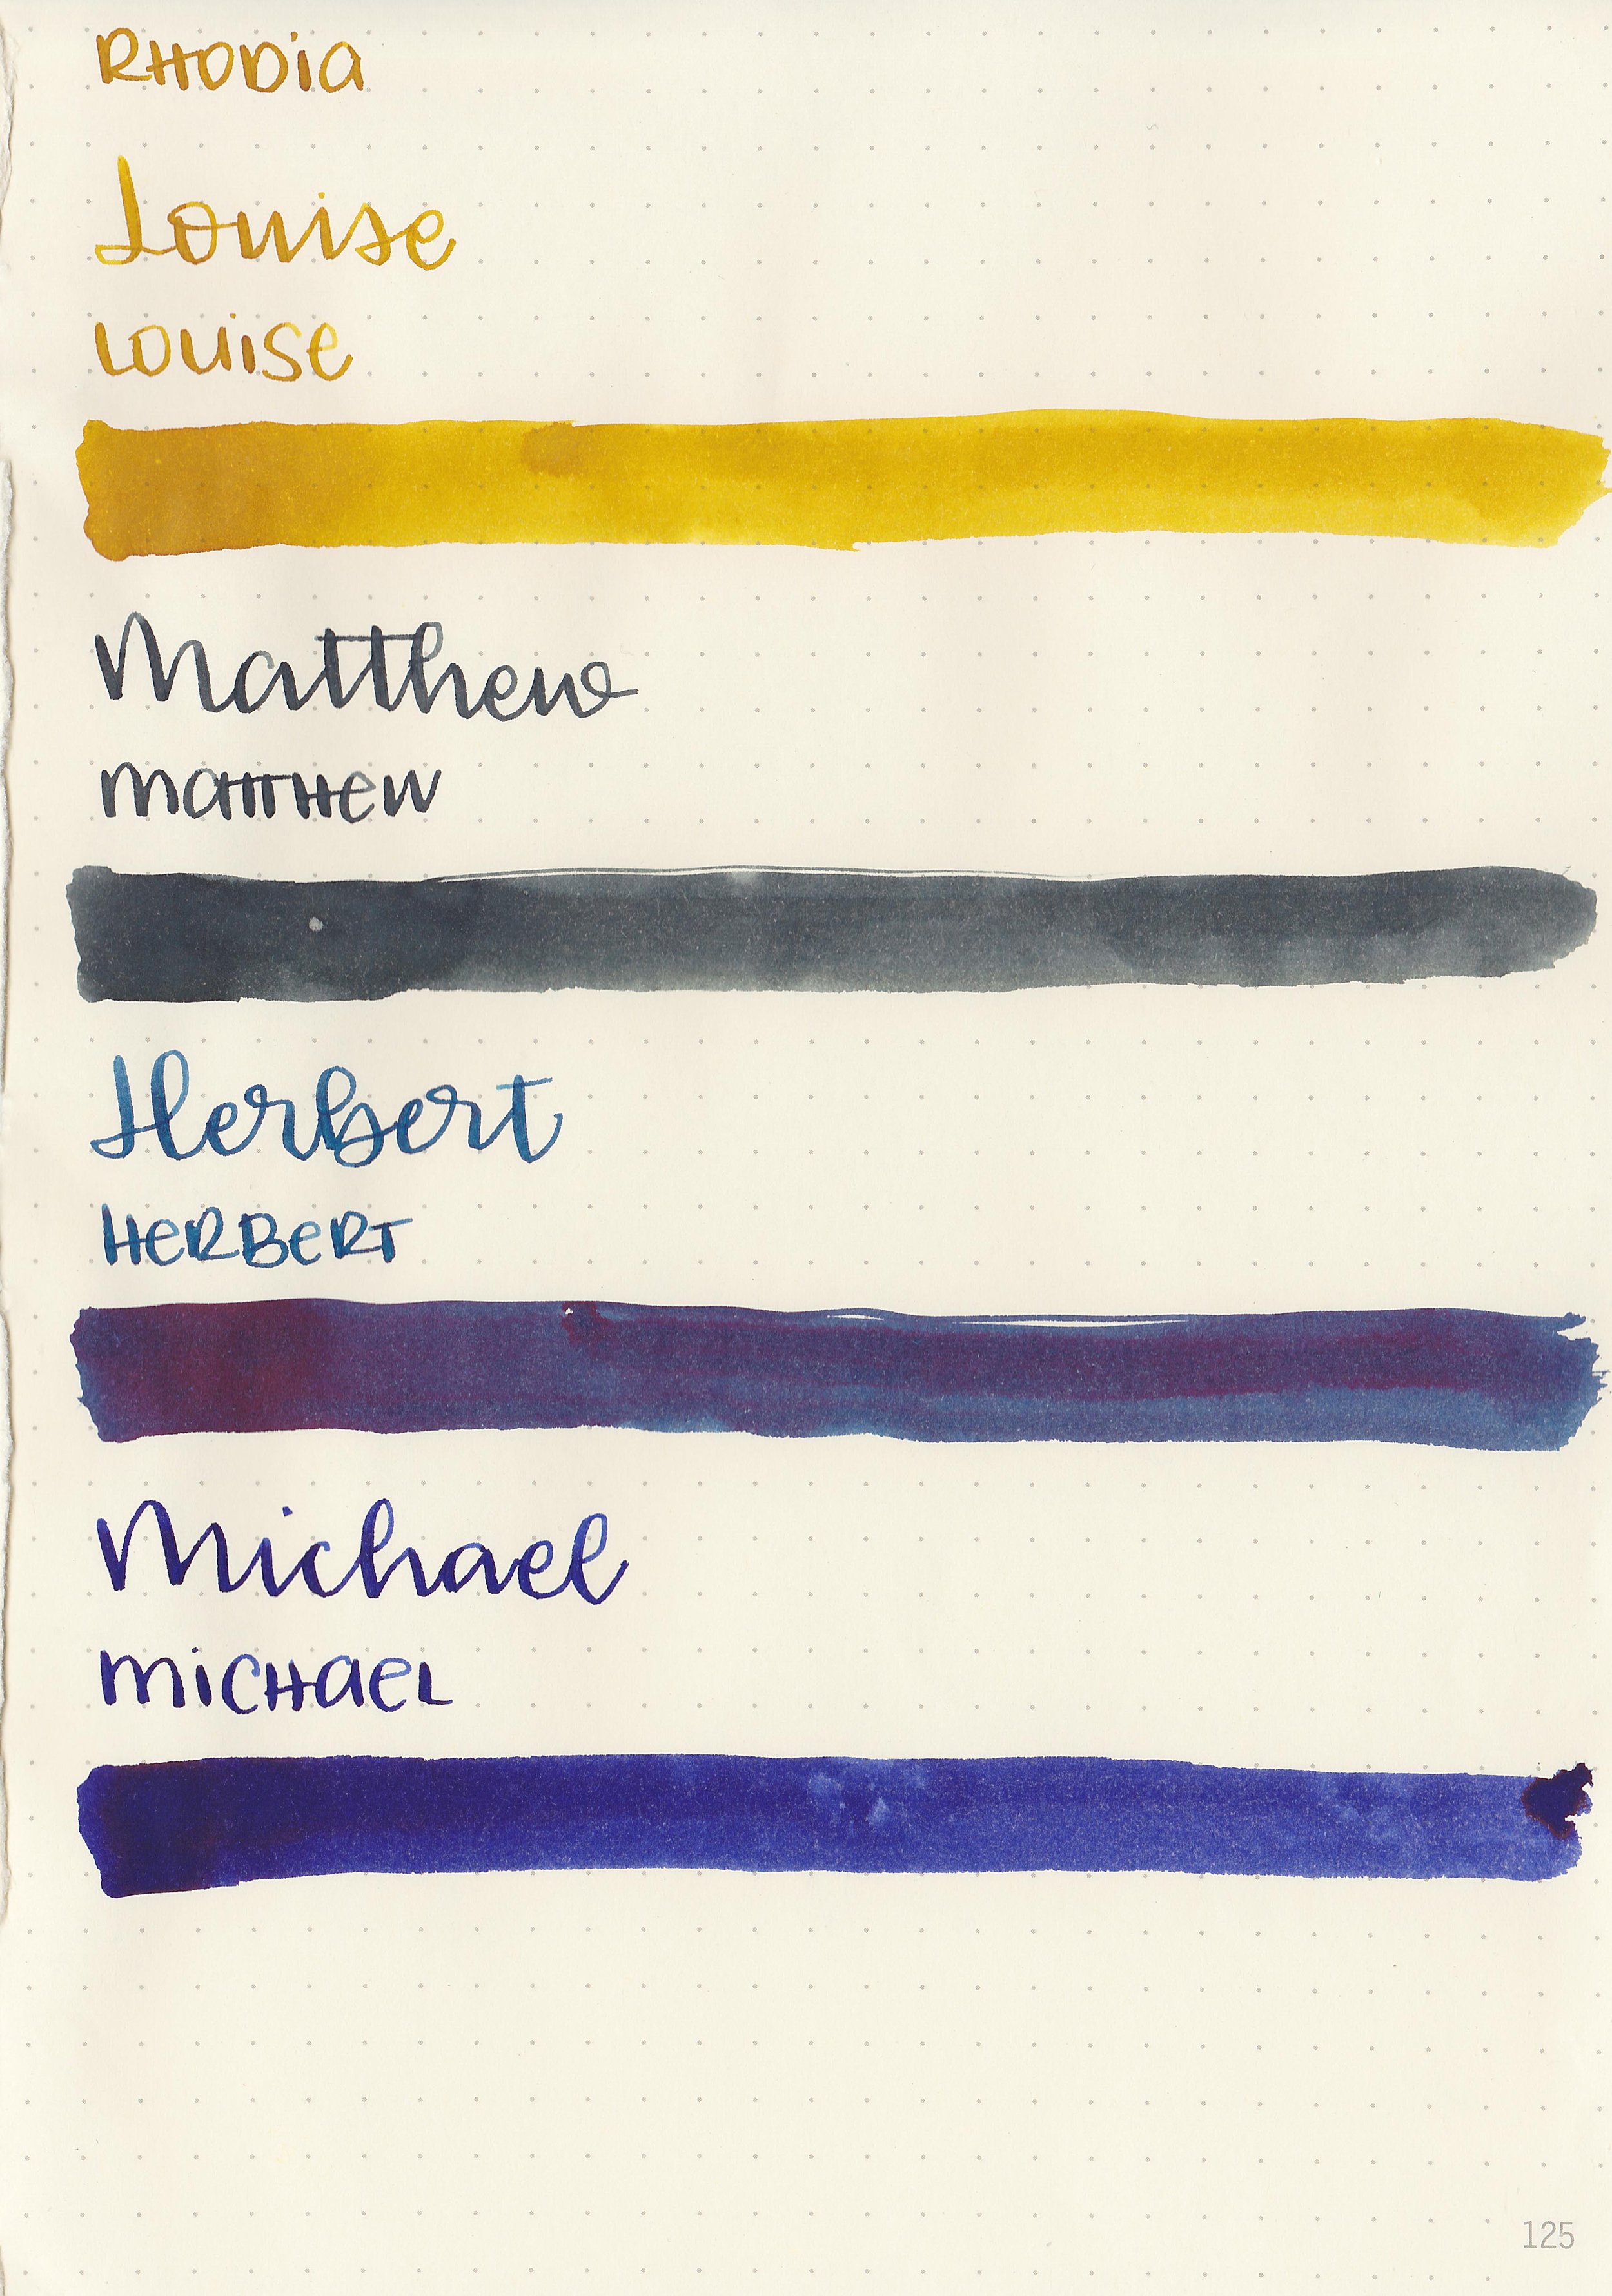 RHODia
Louise
LOUiSe
Matthew
maTTHew
Herbert
HeRBeRT
Michael
miCHaeL
125